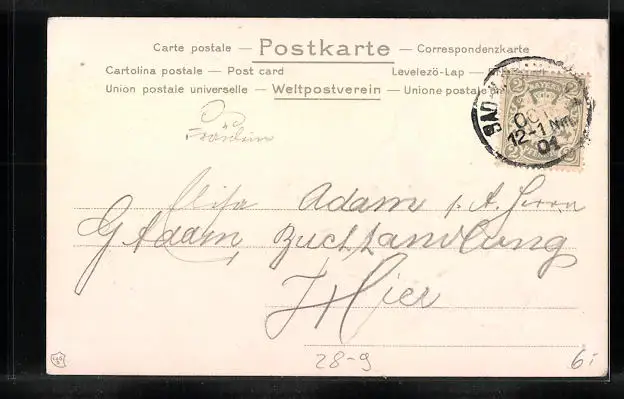 Carte postale — Postkarte — Correspondenzkarte
Cartolina postale — Post card Levelezö-Lap —
Union postale universelle — Weltpostverein — Unione postale
BAD
12-1 Nm.
01
2 2
2 2
Fräulein
Adam p. A. Herrn
G Adam Buchhandlung
Hier
28-9
6.-